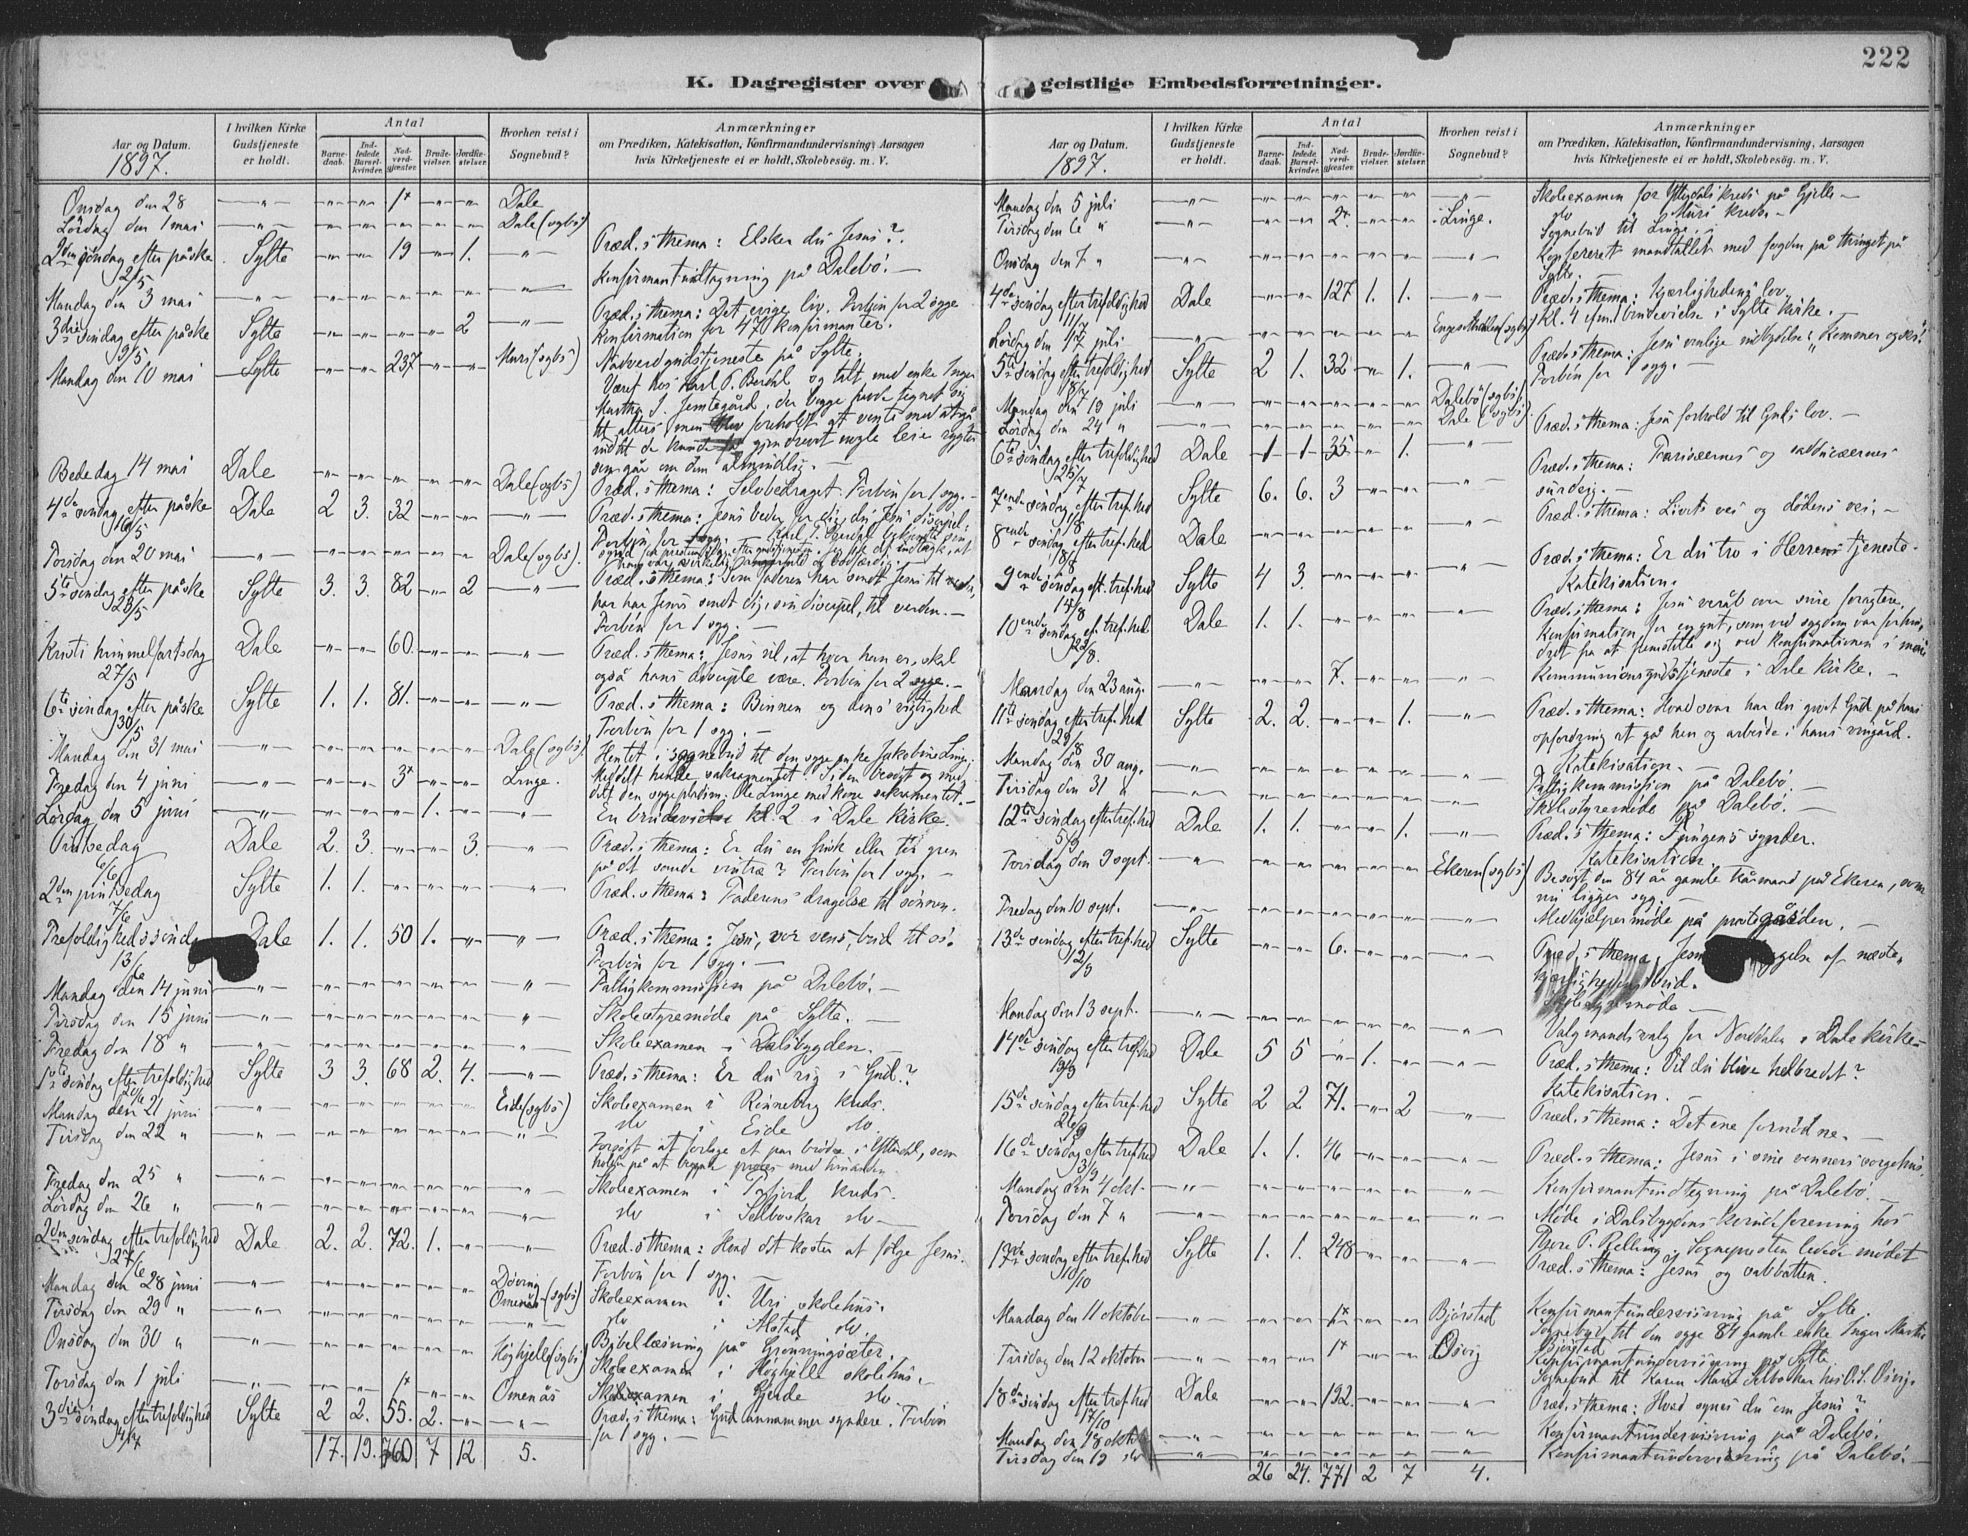 222
K. Dagregister over geistlige Embedsforretninger.
Aar og Datum.
1897.
I hvilken Kirke Gudstjeneste er holdt.
Antal
Barnedaab.
Indledede Barselkvinder.
Nadverdgjæster.
Brudevielser.
Jordfæstelser.
Hvorhen reist i Sognebud?
Anmærkninger
om Prædiken, Katekisation, Konfirmandundervisning, Aarsagen
hvis Kirketjeneste ei er holdt, Skolebesög. m. V.
Onsdag den 28 —"— " " 1x " " Dale
Lördag den 1 mai —"— " " " " " Dale (sgbs)
2den söndag efter påske 2/5 Sylte " " 19 " 1. " Præd.s thema: Elsker du Jesus?
Mandag den 3 mai —"— " " " " " " Konfirmantudtagning på Dalebö. —
3die söndag efter påske 9/5 Sylte " " " " 2 " Præd.s thema: Det evige liv. Forbön for 2 sygge
Konfirmation for 47 konfirmanter.
Mandag den 10 mai Sylte " " 237 " " Muri (sgbs) Nadverdgudstjeneste på Sylte.
Været hos Karl P. Berdal og talt med enke Inger
Martha J. Jemtegård, der begge havde tegnet sig
til alters, men blev foreholdt at vente med at gå
indtil de kunde gjendrevet nogle leie rygter
som går om dem almindelig. —
Bededag 14 mai Dale " " " " " Dale (sgbs) Præd.s thema: Selvbedraget. Forbön for 1 syg. —
4de söndag efter påske 16/5 Dale 2 3. 32 " " " Præd.s thema: Jesus beder for dig, du Jesu discipel.
Forbön for 1 syg. —
Torsdag den 20 mai " " " " " Dale (sgbs).
5te söndag efter påske 23/5 Sylte 3. 3. 82 " 2 " Præd.s thema: Som faderen har sendt Jesus til verden,
har har Jesus sendt dig, sin discipel, til verden. —
Forbön for 1 syg. —
Kristi himmelfartsdag 27/5 Dale " " 60. " " " Præd.s thema: Jesus vil, at hvor han er, skal
også hans disciple være. Forbön for 2 sygge. —
6te söndag efter påske 30/5 Sylte 1. 1. 81. " " " Præd.s thema: Bönnen og dens vigtighed
Forbön for 1 syg. —
Mandag den 31 mai —"— " " " " " Dale (sgbs). Hentet i sognebud til den sygge enke Jakobine Linge;
Fredag den 4 juni —"— " " 3x " " Linge. Meddelt hende sakramentet.
Lördag den 5 juni —"— " " " 1. " " En brudevielse kl. 2 i Dale kirke.
Pintsedag 6/6 Dale 2. 3. " " 3. " Præd.s thema: Er du en frisk eller tör gren
på det sande vintræ? Forbön for 1 syg. —
2den pintsedag 7/6 Sylte 1. 1. " " " " Præd.s thema: Faderens dragelse til sönnen.
Trefoldighedssöndag 13/6 Dale 1. 1. 50 1. " " Præd.s thema: Jesus, vor vens, bud til os.
Forbön for 1 syg. —
Mandag den 14 juni —"— " " " " " " Fattigkommission på Dalebö. —
Tirsdag den 15 juni —"— " " " " " " Skolestyremöde på Sylte. —
Fredag den 18 " —"— " " " " " " Skoleexamen i Dalsbygden. —
1ste söndag efter trefoldighed 20/6 Sylte 3 3. 68 2. 4. " Præd.s thema: Er du rig i Gud?
Mandag den 21 juni —"— " " " " " Eide (sgbs) Skoleexamen i Rönneberg kreds.
Tirsdag den 22 " —"— " " " " " " do i Eide do.
Forsögt at forlige et par brödre i Yttedal, som
holder på at begynde proces med hinanden.
Fredag den 25 " —"— " " " " " " Skoleexamen i Tafjord kreds.
Lördag den 26 " —"— " " " " " " do i Selboskar do —
2den söndag efter trefoldighed 27/6 Dale 2. 2. 72. 1. " " Præd.s thema: Hvad det koster at fölge Jesus.
Forbön for 1 syg. —
Mandag den 28 juni —"— " " " " " Döving Omenås (sgbs) Skoleexamen i Uri skolehus.
Tirsdag den 29 " —"— " " " " " " do i Alstad do.
Onsdag den 30 " —"— " " " " " Höghjelle (sgbs) Bibellæsning på Grönningsæter.
Skoleexamen i Höghjelle skolehus. —
Torsdag den 1 juli —"— " " 1x " " Omenås Skoleexamen i Gjerde do
3die söndag efter trefoldighed 4/7 Sylte 2 2. 55. 2. " " Præd.s thema: Gud annammer syndere. Forbön
for 1 syg. —
17. 19. 760 7 12 5.
Aar og Datum.
1897.
I hvilken Kirke Gudstjeneste er holdt.
Antal
Barnedaab.
Indledede Barselkvinder.
Nadverdgjæster.
Brudevielser.
Jordfæstelser.
Hvorhen reist i Sognebud?
Anmærkninger
om Prædiken, Katekisation, Konfirmandundervisning, Aarsagen
hvis Kirketjeneste ei er holdt, Skolebesög. m. V.
Mandag den 5 juli —"— " " " " " " Skoleexamen for Yttredals kreds på Gjelle —
Tirsdag den 6 " —"— " " 2x " " Linge. do " Muri kreds. —
Sognebud til Linge. —
Onsdag den 7 " —"— " " " " " " Konfereret mandtallet med fogden på thinget på
Sylte. —
4de söndag efter trefoldighed 11/7 Dale " " 127 1. 1. " Præd.s thema: Kjærlighedens lov.
Kl. 4 efm. brudevielse i Sylte kirke. —
Lördag den 17 juli " " " " " (sgbs)
5te söndag efter trefoldighed 18/7 Sylte 2 1. 32 " 1. " Præd.s thema: Jesu venlige indbydelse: "Kommer og æder!"
Forbön for 1 syg. —
Mandag den 19 juli —"— " " " " " Dalebö (sgbs).
Lördag den 24 " —"— " " " " " Dale (sgbs)
6te söndag efter trefoldighed 25/7 Dale 1 1 35 " 1. " Præd.s thema: Jesu forhold til Guds lov. —
7ende söndag efter tref.hed 1/8 Sylte 6. 6. 3 " " " Præd.s thema: Farisæernes og sadducæernes
surdeig. —
8ende söndag efter tref.hed 8/8 Dale " " " " " " Præd.s thema: Livets vei og dödens vei. —
9ende söndag eft. tref.hed 14/8 Sylte 4 3. " " " " Præd.s thema: Er du tro i Herrens tjeneste.
Katekisation.
10ende söndag ef. tref.hed 22/8. Dale 1. 1. " " " " Præd.s thema: Jesu veråb over sine foragtere.
Konfirmation for en gut, som ved sygdom var forhin-
dret fra at fremstille sig ved konfirmationen i mai
Mandag den 23 aug. —"— " " 7. " " " Kommunionsgudstjeneste i Dale kirke. —
11te söndag efter tref.hed 29/8 Sylte 2. 2. " " 1. " Præd.s thema: Hvad svar har du givet Gud på hans
opfordring at gå hen og arbeide i hans vingård.
Katekisation. —
Mandag den 30 aug. —"— " " " " " " Fattigkommission på Dalebö. —
Tirsdag den 31 " —"— " " " " " " Skolestyremöde på Dalebö. —
12te söndag efter tref.hed 5/9 Dale 1. 1. " " 1. " Præd.s thema: Tungens synder.
Katekisation.
Torsdag den 9 sept. —"— " " " " " Ekeren (sgbs) Besögt den 84 år gamle kårmand på Ekeren, som
nu ligger syg. —
Fredag den 10 sept. —"— " " " " " " Medhjælpermöde på prestegården. —
13de söndag efter tref.hed 12/9 Sylte " " 6. " " " Præd.s thema: Jesu gelse af næste-
kjærlighedens bud.
Skolestyremöde —
Mandag den 13 sept. —"— " " " " " " Valgmandsvalg for Norddalen i Dale kirke —
14de söndag efter tref.hed 19/9 Dale 5 5 " 1. " " Præd.s thema: Vil du blive helbredet?
Katekisation. —
15de söndag efter tref.hed 26/9 Sylte 2 2 71. " 2 " Præd.s thema: Det ene fornödne. —
16de söndag efter tref.hed 3/9 Dale 1. 1. 46 " " " Præd.s thema: Jesus i sine venners sorgehus.
Mandag den 4 okt. —"— " " " " " " Konfirmantindtegning på Dalebö. —
Torsdag den 7 " —"— " " " " " " Möde i Dalsbygdens kvindeforening hos
Thore P. Relling. Sognepresten ledede mödet
17de söndag efter tref.hed 10/10 Sylte 1. 1. 248 " " " Præd.s thema: Jesus og sabbatten.
Mandag den 11 oktober " " 1x " " Bjørstad Konfirmantundervisning på Sylte.
Sognebud til den sygge 84 gamle enke Inger Martha
Bjørstad
Tirsdag den 12 oktober —"— " " 1x " " Osvig Konfirmantundervisning på Sylte.
Sognebud til Karen Marie Selboskar hos O. S. Osvig.
18de söndag efter tref.hed 17/10 Dale " " 192. " " " Præd.s thema: Hvad synes du om Jesus?
Mandag den 18 oktober —"— " " " " " " Konfirmantundervisning på Dalebö.
Tirsdag den 19 do —"— " " " " " " Konfirmantundervisning på Dalebö. —
26 24. 771 2 7 4.